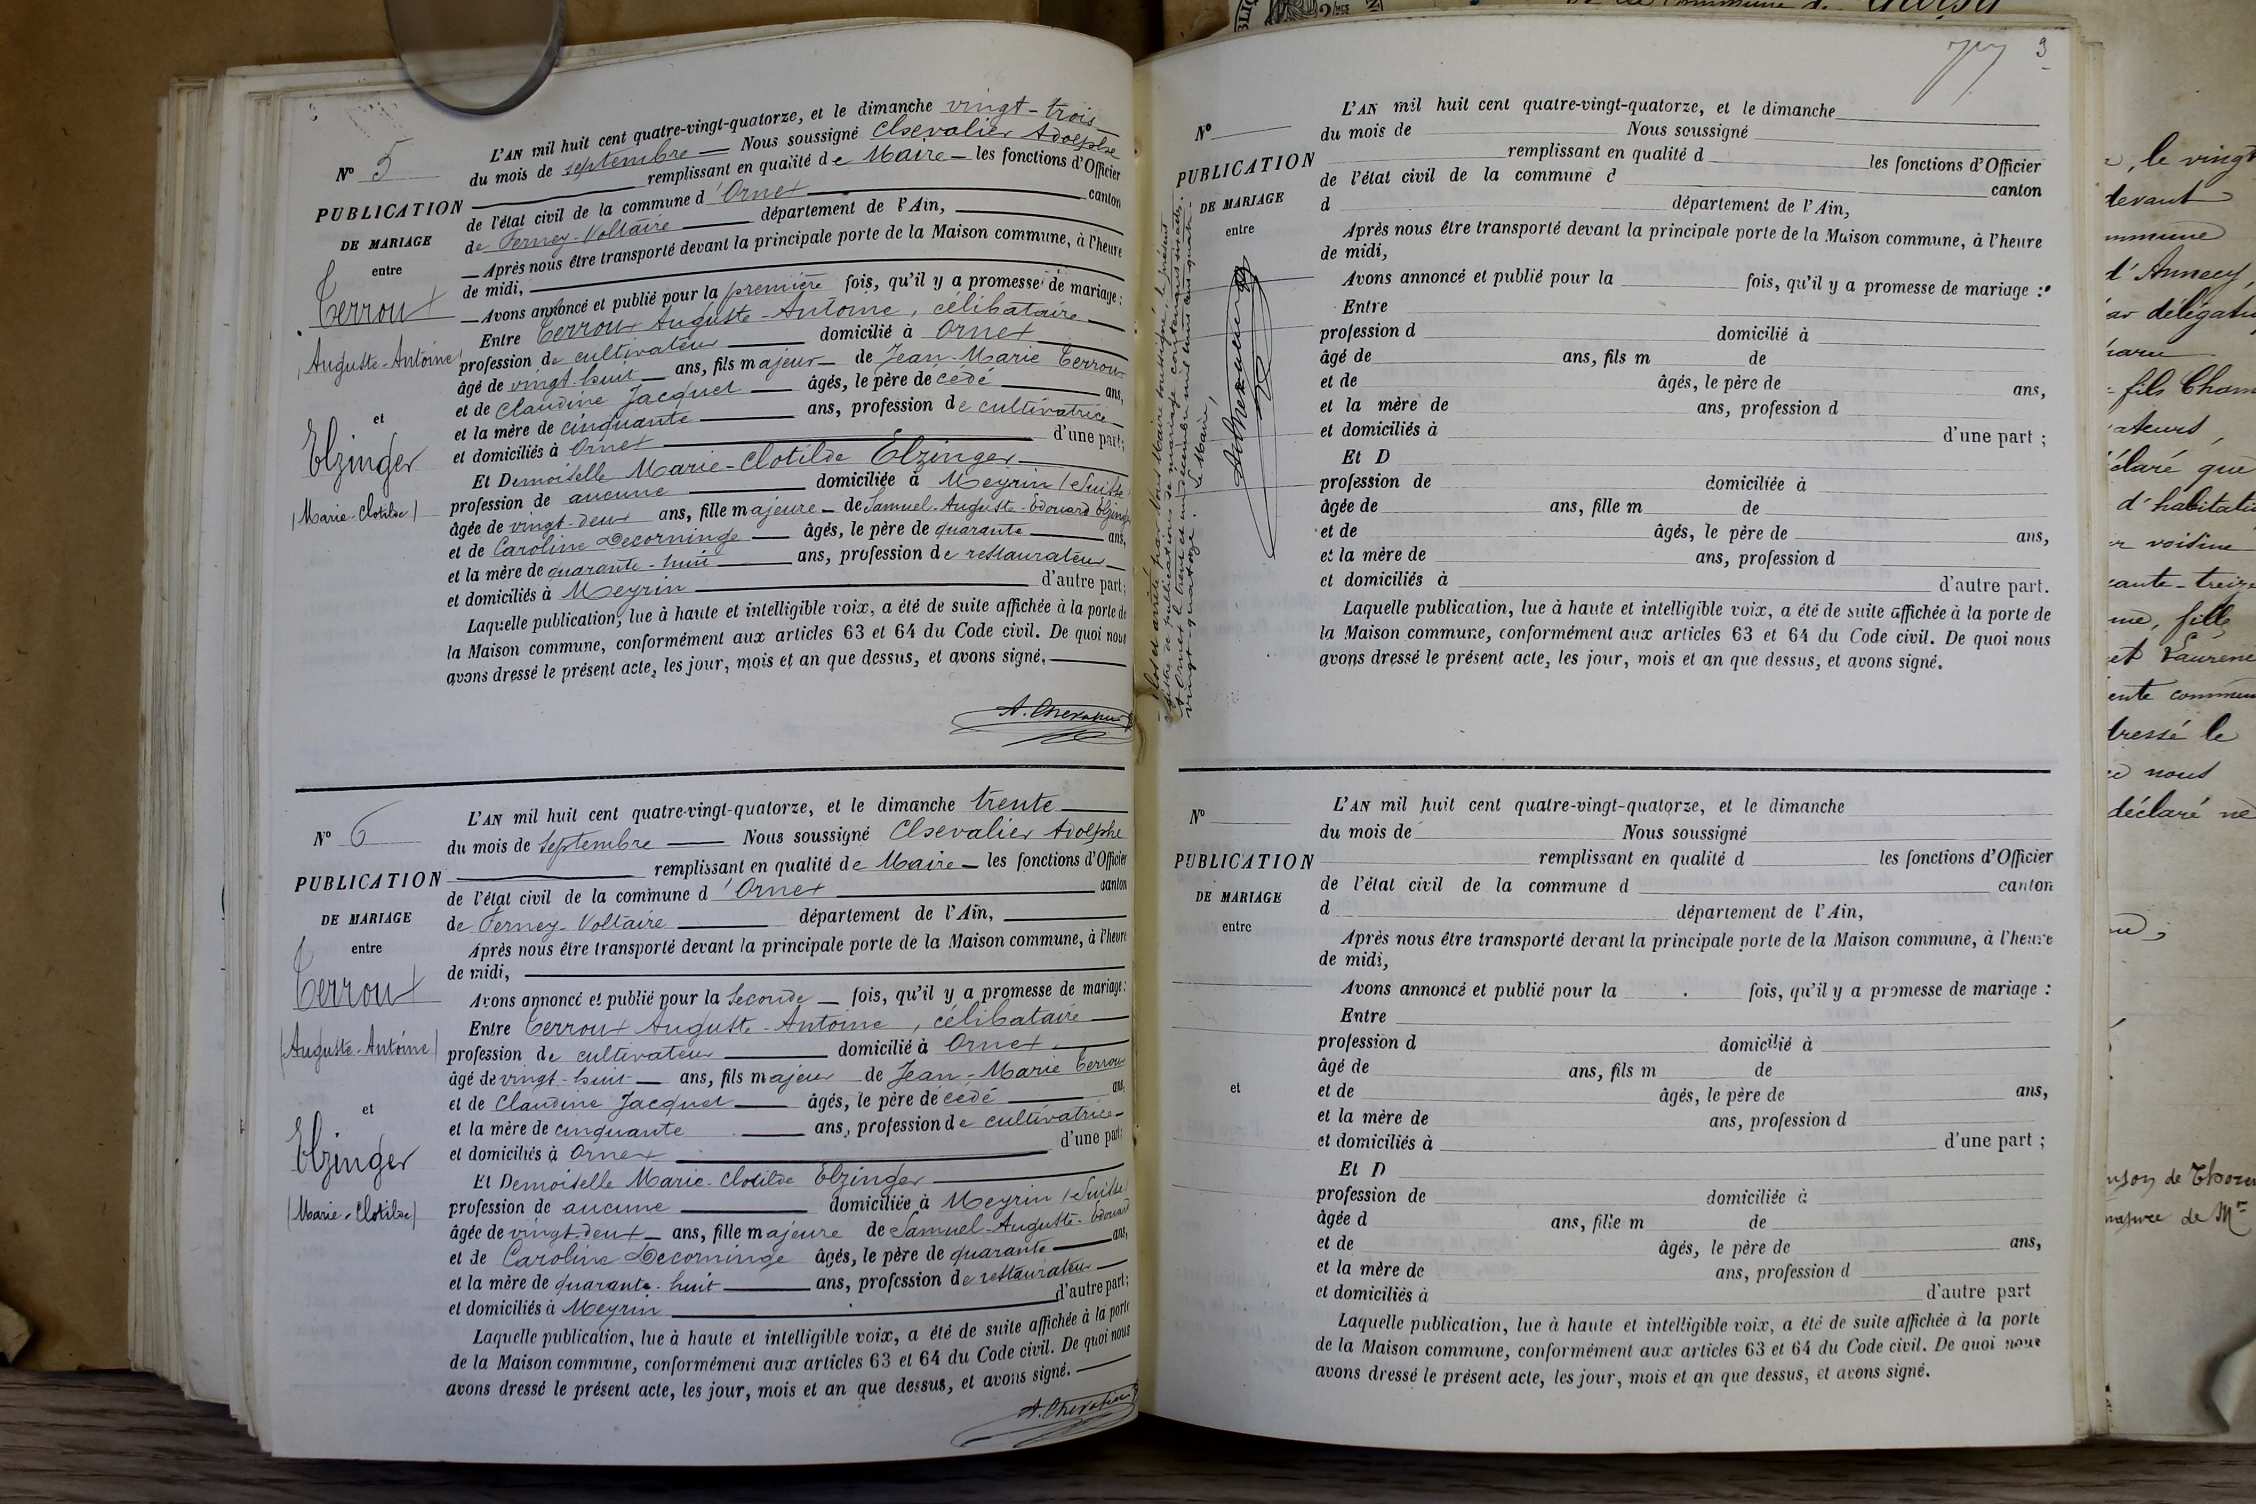 N° 5
PUBLICATION
DE MARIAGE
entre
Terroux
(Auguste-Antoine)
et
Elzinger
(Marie-Clotilde)
L'AN mil huit cent quatre-vingt-quatorze, et le dimanche vingt-trois
du mois de septembre Nous soussigné Chevalier Adolphe
remplissant en qualité de Maire les fonctions d'Officier
de l'état civil de la commune d'Ornex canton
de Ferney-Voltaire département de l'Ain,
Après nous être transporté devant la principale porte de la Maison commune, à l'heure
de midi,
Avons annoncé et publié pour la première fois, qu'il y a promesse de mariage :
Entre Terroux Auguste-Antoine, célibataire
profession de cultivateur domicilié à Ornex
âgé de vingt-huit ans, fils majeur de Jean-Marie Terroux
et de Claudine Jacquet âgés, le père de cédé ans,
et la mère de cinquante ans, profession de cultivatrice
et domiciliés à Ornex d'une part;
Et Demoiselle Marie-Clotilde Elzinger
profession de aucune domiciliée à Meyrin (Suisse)
âgée de vingt-deux ans, fille majeure de Samuel-Auguste-Edouard Elzinger
et de Caroline Decorninge âgés, le père de quarante ans,
et la mère de quarante-huit ans, profession de restaurateur
et domiciliés à Meyrin d'autre part;
Laquelle publication, lue à haute et intelligible voix, a été de suite affichée à la porte de
la Maison commune, conformément aux articles 63 et 64 du Code civil. De quoi nous
avons dressé le présent acte, les jour, mois et an que dessus, et avons signé.
A. Chevalier
N° 6
PUBLICATION
DE MARIAGE
entre
Terroux
(Auguste-Antoine)
et
Elzinger
(Marie-Clotilde)
L'AN mil huit cent quatre-vingt-quatorze, et le dimanche trente
du mois de septembre Nous soussigné Chevalier Adolphe
remplissant en qualité de Maire les fonctions d'Officier
de l'état civil de la commune d'Ornex canton
de Ferney-Voltaire département de l'Ain,
Après nous être transporté devant la principale porte de la Maison commune, à l'heure
de midi,
Avons annoncé et publié pour la seconde fois, qu'il y a promesse de mariage :
Entre Terroux Auguste-Antoine, célibataire
profession de cultivateur domicilié à Ornex
âgé de vingt-huit ans, fils majeur de Jean-Marie Terroux
et de Claudine Jacquet âgés, le père de cédé ans,
et la mère de cinquante ans, profession de cultivatrice
et domiciliés à Ornex d'une part;
Et Demoiselle Marie-Clotilde Elzinger
profession de aucune domiciliée à Meyrin (Suisse)
âgée de vingt-deux ans, fille majeure de Samuel-Auguste-Edouard
et de Caroline Decorninge âgés, le père de quarante ans,
et la mère de quarante-huit ans, profession de restaurateur
et domiciliés à Meyrin d'autre part;
Laquelle publication, lue à haute et intelligible voix, a été de suite affichée à la porte
de la Maison commune, conformément aux articles 63 et 64 du Code civil. De quoi nous
avons dressé le présent acte, les jour, mois et an que dessus, et avons signé.
A. Chevalier
3
Clos et arrêté par Nous Maire soussigné, le présent
registre de publications de mariage contenant
à Ornex le trente et un décembre mil huit cent quatre-
vingt-quatorze. Le Maire,
A. Chevalier
N°
PUBLICATION
DE MARIAGE
entre
L'AN mil huit cent quatre-vingt-quatorze, et le dimanche
du mois de Nous soussigné
remplissant en qualité d les fonctions d'Officier
de l'état civil de la commune d canton
d département de l'Ain,
Après nous être transporté devant la principale porte de la Maison commune, à l'heure
de midi,
Avons annoncé et publié pour la fois, qu'il y a promesse de mariage :
Entre
profession d domicilié à
âgé de ans, fils m de
et de âgés, le père de ans,
et la mère de ans, profession d
et domiciliés à d'une part ;
Et D
profession de domiciliée à
âgée de ans, fille m de
et de âgés, le père de ans,
et la mère de ans, profession d
et domiciliés à d'autre part.
Laquelle publication, lue à haute et intelligible voix, a été de suite affichée à la porte de
la Maison commune, conformément aux articles 63 et 64 du Code civil. De quoi nous
avons dressé le présent acte, les jour, mois et an que dessus, et avons signé.
N°
PUBLICATION
DE MARIAGE
entre
et
L'AN mil huit cent quatre-vingt-quatorze, et le dimanche
du mois de Nous soussigné
remplissant en qualité d les fonctions d'Officier
de l'état civil de la commune d canton
d département de l'Ain,
Après nous être transporté devant la principale porte de la Maison commune, à l'heure
de midi,
Avons annoncé et publié pour la fois, qu'il y a promesse de mariage :
Entre
profession d domicilié à
âgé de ans, fils m de
et de âgés, le père de ans,
et la mère de ans, profession d
et domiciliés à d'une part ;
Et D
profession de domiciliée à
âgée d ans, fille m de
et de âgés, le père de ans,
et la mère de ans, profession d
et domiciliés à d'autre part
Laquelle publication, lue à haute et intelligible voix, a été de suite affichée à la porte
de la Maison commune, conformément aux articles 63 et 64 du Code civil. De quoi nous
avons dressé le présent acte, les jour, mois et an que dessus, et avons signé.
le vingt
devant
d'Annecy,
fils
déclaré que
d'habitation
voisine
fille
et
dressé le
nous
déclaré ne
de
de Mr